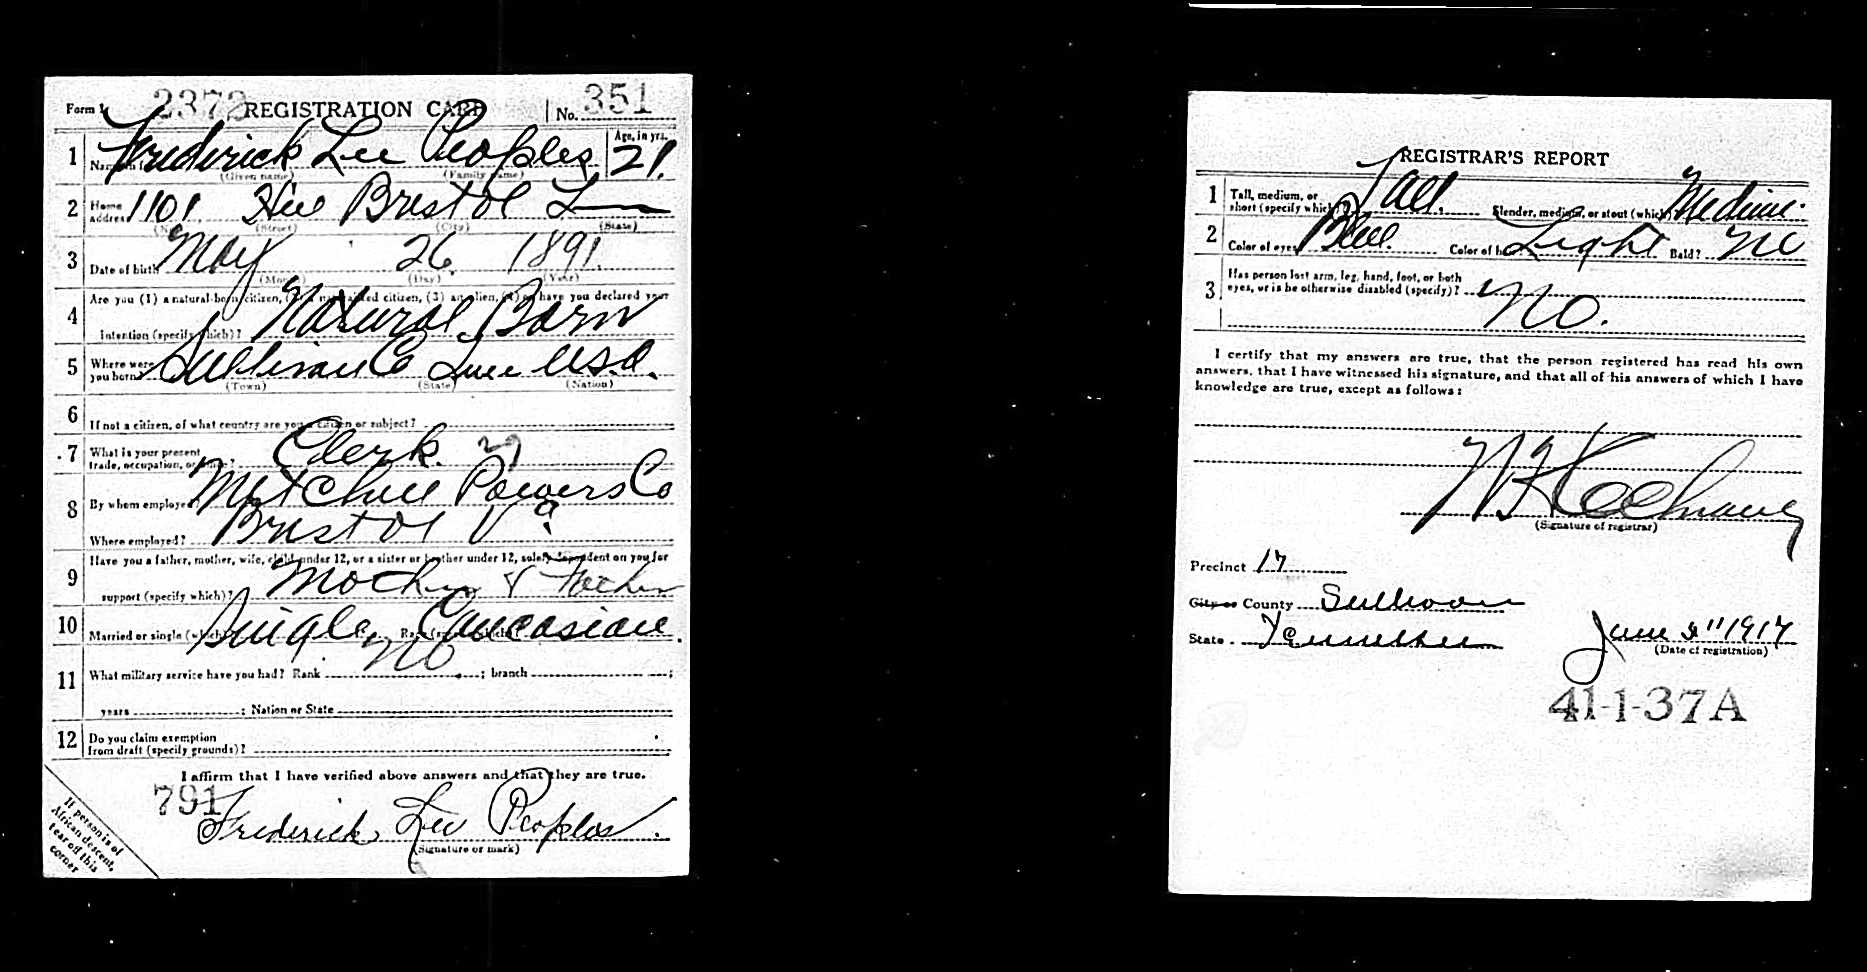 Form 1 2372 REGISTRATION CARD No. 351
1 Name in full Frederick Lee Peoples Age, in yrs. 21.
(Given name) (Family name)
2 Home address 1101 Bristol Tenn
(No.) (Street) (City) (State)
3 Date of birth May 26 1891
(Month) (Day) (Year)
4 Are you (1) a natural-born citizen, (2) a naturalized citizen, (3) an alien, (4) or have you declared your
intention (specify which)? Natural Born
5 Where were you born? Sullivan Co Tenn U.S.A.
(Town) (State) (Nation)
6 If not a citizen, of what country are you a citizen or subject?
7 What is your present trade, occupation, or office? Clerk. 29
8 By whom employed? Mitchell Powers Co
Where employed? Bristol Va.
9 Have you a father, mother, wife, child under 12, or a sister or brother under 12, solely dependent on you for
support (specify which)? Mother & Father
10 Married or single (which)? Single Race (specify which)? Caucasian.
No
11 What military service have you had? Rank ; branch ;
years ; Nation or State
12 Do you claim exemption
from draft (specify grounds)?
I affirm that I have verified above answers and that they are true.
791
Frederick Lee Peoples.
(Signature or mark)
If person is of
African descent,
tear off this
corner
REGISTRAR'S REPORT
1 Tall, medium, or short (specify which)? Tall. Slender, medium, or stout (which)? Medium.
2 Color of eyes? Blue. Color of hair? Light Bald? No
3 Has person lost arm, leg, hand, foot, or both
eyes, or is he otherwise disabled (specify)? No.
I certify that my answers are true, that the person registered has read his own
answers, that I have witnessed his signature, and that all of his answers of which I have
knowledge are true, except as follows:
(Signature of registrar)
Precinct 17
City or County Sullivan
State Tennessee June 5" 1917
(Date of registration)
41-1-37A